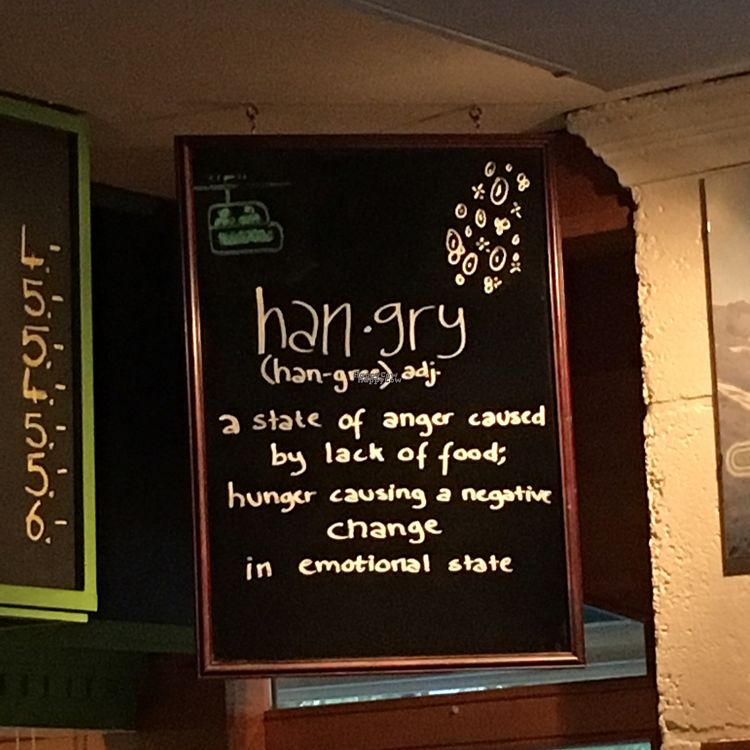 han·gry
(han-gree) adj.
a state of anger caused
by lack of food;
hunger causing a negative
change
in emotional state